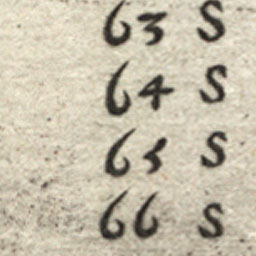 63 S
64 S
65 S
66 S